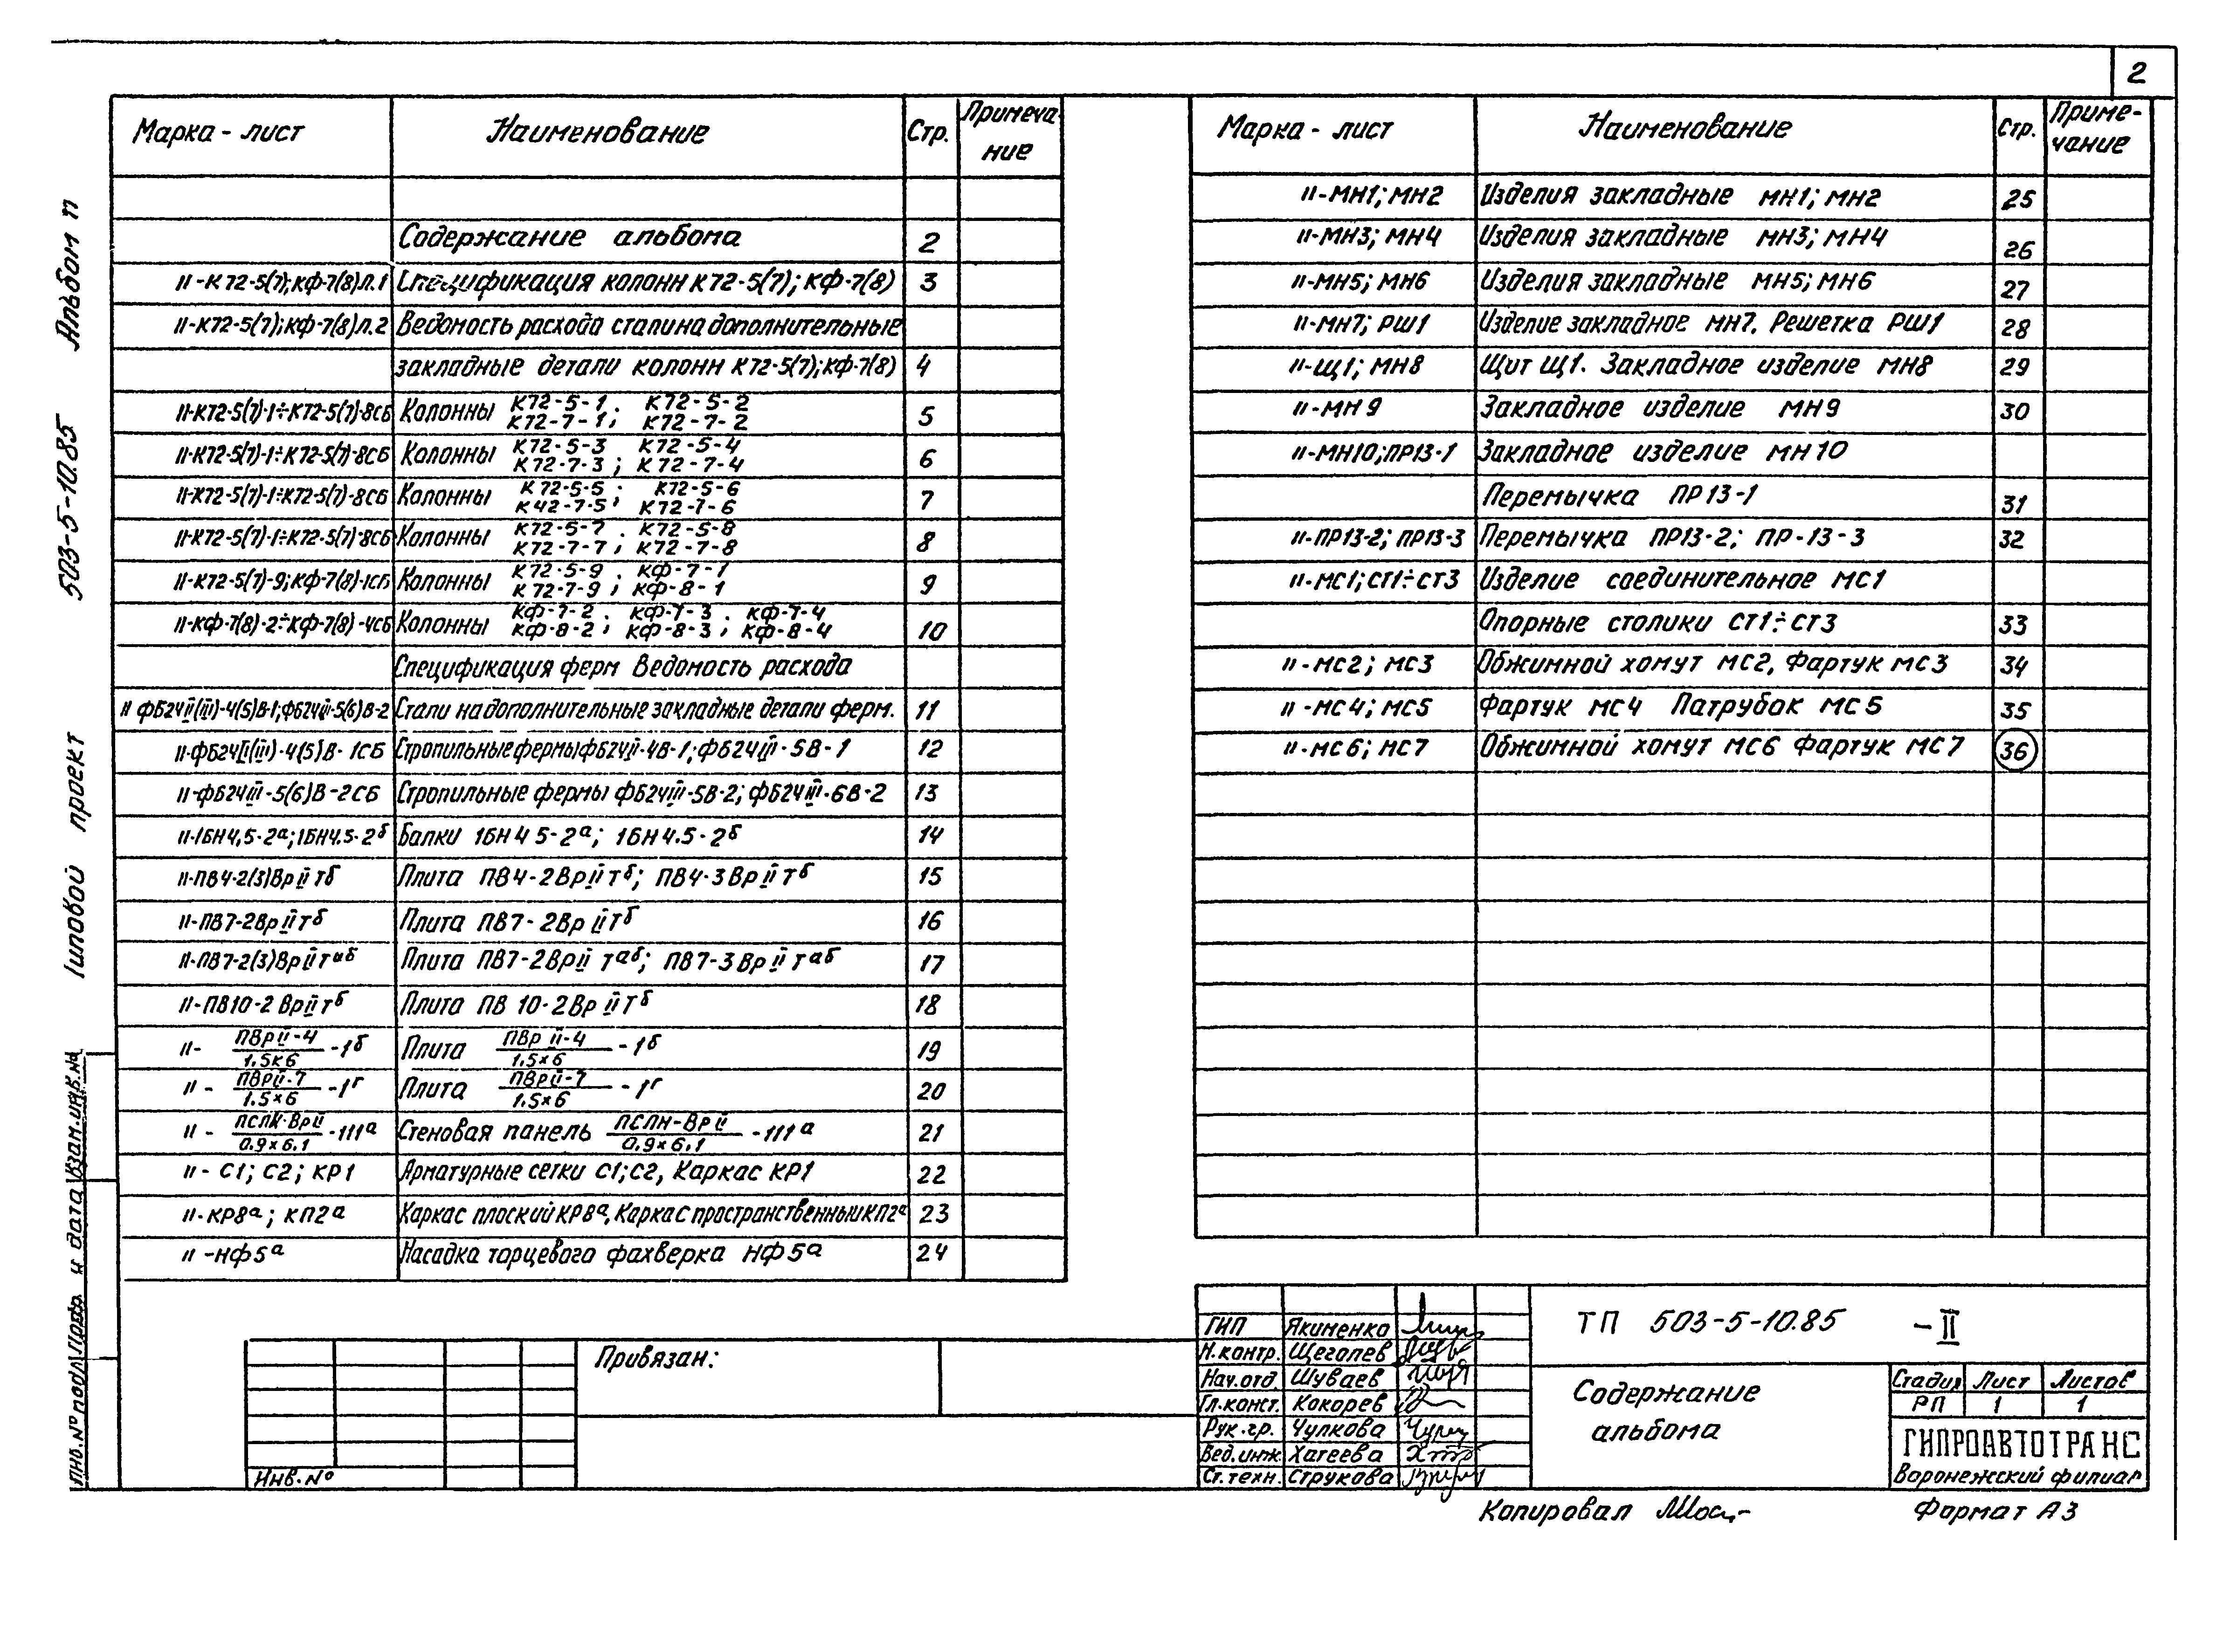 2
Марка - лист Наименование Стр. Примеча-
ние
Содержание альбома 2
II-К72-5(7);КФ-7(8)Л.1 Спецификация колонн К72-5(7); КФ-7(8) 3
II-К72-5(7);КФ-7(8)Л.2 Ведомость расхода стали на дополнительные
закладные детали колонн К72-5(7);КФ-7(8) 4
II-К72-5(7)-1÷К72-5(7)-8СБ Колонны К72-5-1; К72-5-2
К72-7-1; К72-7-2 5
II-К72-5(7)-1÷К72-5(7)-8СБ Колонны К72-5-3 К72-5-4
К72-7-3; К72-7-4 6
II-К72-5(7)-1÷К72-5(7)-8СБ Колонны К72-5-5; К72-5-6
К42-7-5; К72-7-6 7
II-К72-5(7)-1÷К72-5(7)-8СБ Колонны К72-5-7; К72-5-8
К72-7-7; К72-7-8 8
II-К72-5(7)-9;КФ-7(8)-1СБ Колонны К72-5-9; КФ-7-1
К72-7-9; КФ-8-1 9
II-КФ-7(8)-2÷КФ-7(8)-4СБ Колонны КФ-7-2; КФ-7-3; КФ-7-4
КФ-8-2; КФ-8-3; КФ-8-4 10
Спецификация ферм Ведомость расхода
II ФБ24II(III)-4(5)В-1;ФБ24III-5(6)В-2 Стали на дополнительные закладные детали ферм. 11
II-ФБ24II(III)-4(5)В-1СБ Стропильные фермы ФБ24II-4В-1; ФБ24III-5В-1 12
II-ФБ24III-5(6)В-2СБ Стропильные фермы ФБ24III-5В-2; ФБ24III-6В-2 13
II-1БН4,5-2а;1БН4.5-2б Балки 1БН4 5-2а; 1БН4.5-2б 14
II-ПВ4-2(3)ВрIIТб Плита ПВ4-2ВрIIТб; ПВ4-3ВрIIТб 15
II-ПВ7-2ВрIIТб Плита ПВ7-2ВрIIТб 16
II-ПВ7-2(3)ВрIIТаб Плита ПВ7-2ВрIIТаб; ПВ7-3ВрIIТаб 17
II-ПВ10-2ВрIIТб Плита ПВ 10-2ВрIIТб 18
II- ПВрII-4/1,5х6 -1б Плита ПВрII-4/1,5х6 -1б 19
II- ПВрII-7/1.5х6 -1г Плита ПВрII-7/1.5х6 -1г 20
II- ПСЛК-ВрII/0.9х6.1 -111а Стеновая панель ПСЛН-ВрII/0,9х6,1 -111а 21
II- С1; С2; КР1 Арматурные сетки С1;С2, Каркас КР1 22
II-КР8а; КП2а Каркас плоский КР8а, Каркас пространственный КП2а 23
II-НФ5а Насадка торцевого фахверка НФ5а 24
Марка - лист Наименование Стр. Приме-
чание
II-МН1; МН2 Изделия закладные МН1; МН2 25
II-МН3; МН4 Изделия закладные МН3; МН4 26
II-МН5; МН6 Изделия закладные МН5; МН6 27
II-МН7; РШ1 Изделие закладное МН7. Решетка РШ1 28
II-Щ1; МН8 Щит Щ1. Закладное изделие МН8 29
II-МН9 Закладное изделие МН9 30
II-МН10;ПР13-1 Закладное изделие МН10
Перемычка ПР13-1 31
II-ПР13-2; ПР13-3 Перемычка ПР13-2; ПР-13-3 32
II-МС1;СТ1÷СТ3 Изделие соединительное МС1
Опорные столики СТ1÷СТ3 33
II-МС2; МС3 Обжимной хомут МС2, Фартук МС3 34
II-МС4; МС5 Фартук МС4 Патрубок МС5 35
II-МС6; МС7 Обжимной хомут МС6 Фартук МС7 36
Типовой проект 503-5-10.85 Альбом II
Инв.№ подл Подр. и дата Взам.инв.№
Привязан:
Инв.№
ГИП Якименко
Н.контр. Щеголев
Нач.отд. Шуваев
Гл.конст. Кокорев
Рук.гр. Чулкова
Вед.инж. Хатеева
Ст.техн. Струкова
ТП 503-5-10.85 -II
Содержание
альбома
Стадия Лист Листов
РП 1 1
ГИПРОАВТОТРАНС
Воронежский филиал
Копировал
Формат А3